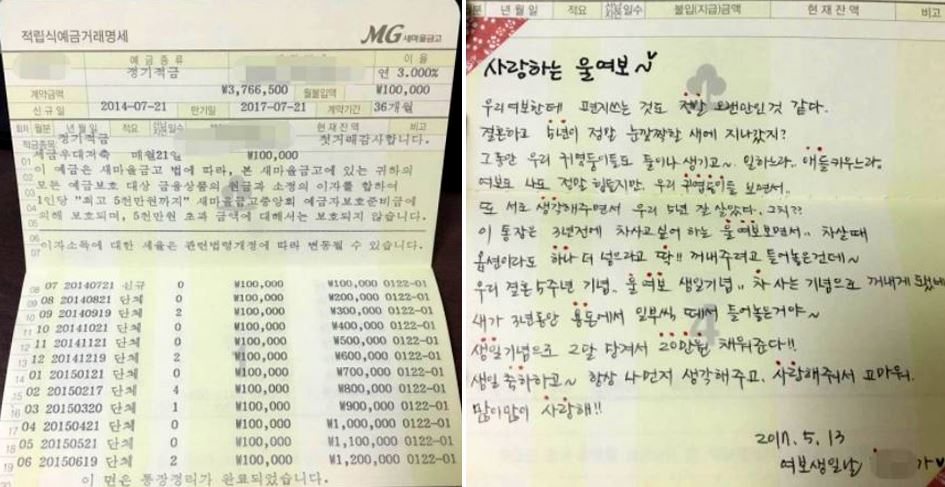 적립식예금거래명세
MG 새마을금고
예금종류
이율
정기적금
연 3.000%
계약금액
₩3,766,500
월불입액
₩100,000
신규일
2014-07-21
만기일
2017-07-21
계약기간
36개월
회차 월분 년월일 적요 선납지연일수 현재잔액 비고
적금종목
정기적금
첫거래감사합니다.
세금우대저축 매월21일 ₩100,000
이 예금은 새마을금고 법에 따라, 본 새마을금고에 있는 귀하의
모든 예금보호 대상 금융상품의 원금과 소정의 이자를 합하여
1인당 "최고 5천만원까지" 새마을금고중앙회 예금자보호준비금에
의해 보호되며, 5천만원 초과 금액에 대해서는 보호되지 않습니다.
이자소득에 대한 세율은 관련법령개정에 따라 변동될 수 있습니다.
07 20140721 신규 0 ₩100,000 ₩100,000 0122-01
08 20140821 단체 0 ₩100,000 ₩200,000 0122-01
09 20140919 단체 2 ₩100,000 ₩300,000 0122-01
10 20141021 단체 0 ₩100,000 ₩400,000 0122-01
11 20141121 단체 0 ₩100,000 ₩500,000 0122-01
12 20141219 단체 2 ₩100,000 ₩600,000 0122-01
01 20150121 단체 0 ₩100,000 ₩700,000 0122-01
02 20150217 단체 4 ₩100,000 ₩800,000 0122-01
03 20150320 단체 1 ₩100,000 ₩900,000 0122-01
04 20150421 단체 0 ₩100,000 ₩1,000,000 0122-01
05 20150521 단체 0 ₩100,000 ₩1,100,000 0122-01
06 20150619 단체 2 ₩100,000 ₩1,200,000 0122-01
이 면은 통장정리가 완료되었습니다.
년월일 적요 선납지연일수 불입(지급)금액 현재잔액 비고
사랑하는 울여보~♥
우리여보한테 편지쓰는 것도 정말 오랜만인것 같다.
결혼하고 5년이 정말 눈깜짝할 새에 지나갔지?
그동안 우리 귀염둥이들도 둘이나 생기고~ 일하느라.. 애들키우느라..
여보도 나도 정말 힘들지만, 우리 귀염둥이들 보면서..
또 서로 생각해주면서 우리 5년 잘 살았다. 그치??
이 통장은 3년전에 차사고싶어 하는 울여보보면서.. 차살때
옵션이라도 하나 더 넣으라고 딱!! 꺼내주려고 들어놓은건데~
우리 결혼5주년 기념.. 울여보 생일기념.. 차 사는 기념으로 꺼내게 됐네
내가 3년동안 용돈에서 일부씩 떼서 들어놓은거야~
생일기념으로 2달 당겨서 20만원 채워준다!!
생일 축하하고~ 항상 나먼저 생각해주고, 사랑해줘서 고마워.
많이많이 사랑해!!
2017. 5. 13
여보생일날 가♥